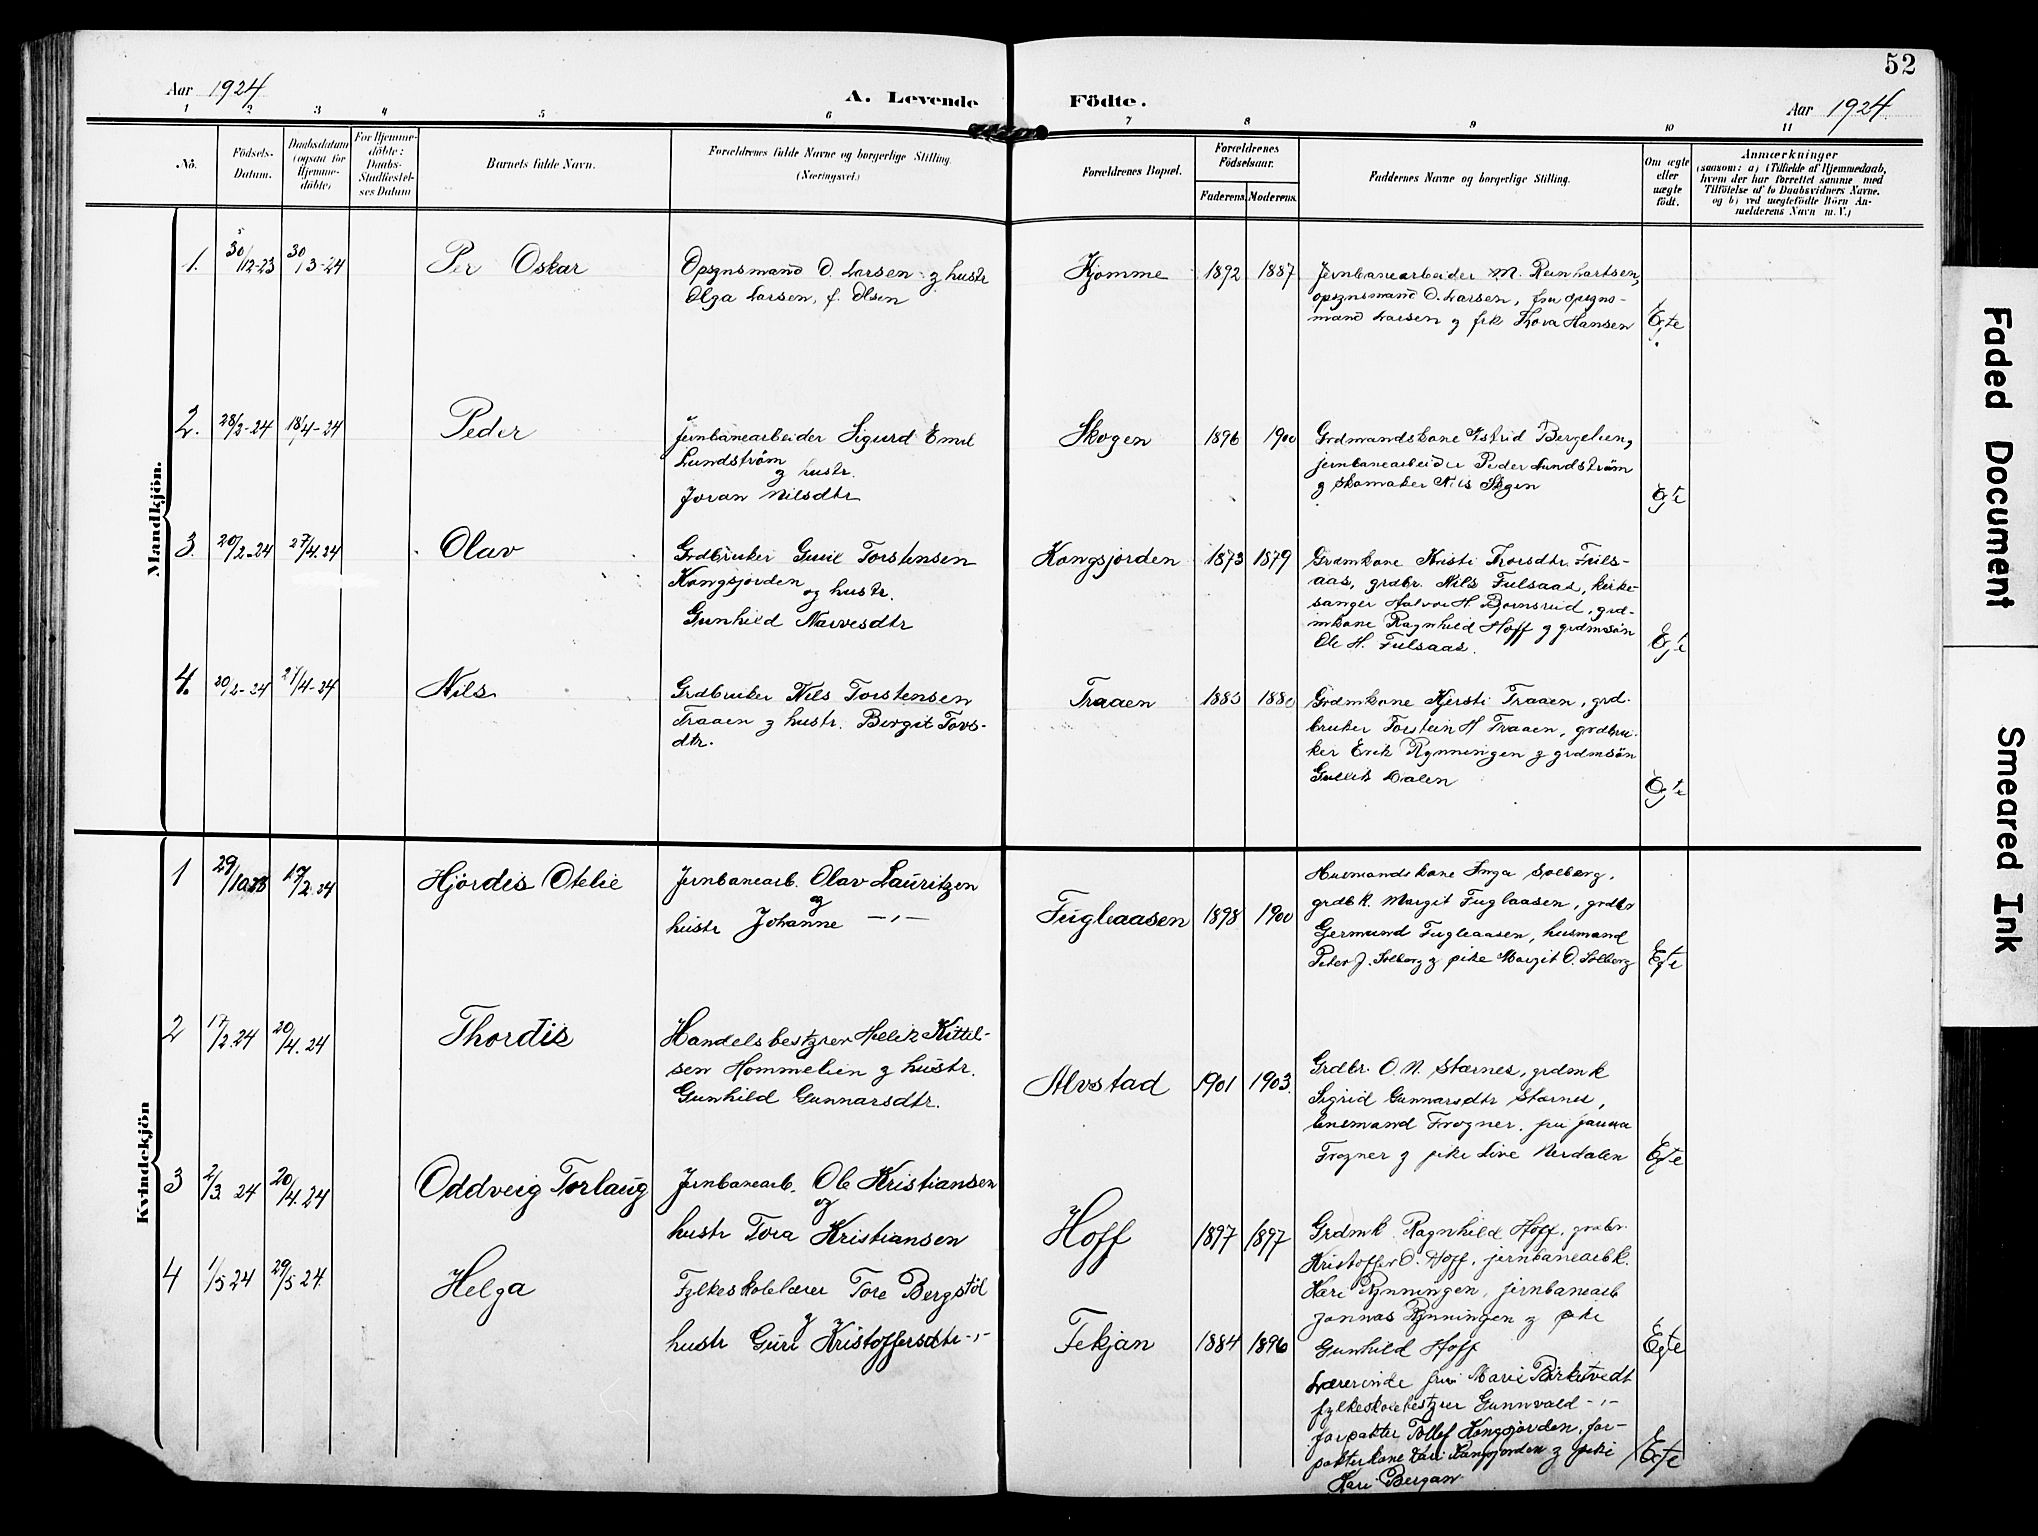 52
Aar 1924
A. Levende Födte.
Aar 1924
1 2 3 4 5 6 7 8 9 10 11
No.
Födsels-
Datum.
Daabsdatum
(ogsaa for
Hjemme-
döbte)
For Hjemme-
döbte:
Daabs-
Stadfæstel-
ses Datum
Barnets fulde Navn.
Forældrenes fulde Navne og borgerlige Stilling.
(Næringsvei.)
Forældrenes Bopæl.
Forældrenes
Födselsaar.
Faderens Moderens
Faddernes Navne og borgerlige Stilling.
Om ægte
eller
uægte
födt.
Anmærkninger
(saasom: a) i Tilfælde af Hjemmedaab,
hvem der har forrettet samme med
Tilföielse af to Daabsvidners Navne.
og b) ved uegtefödte Börn An-
melderens Navn m. V.)
Mandkjön.
1. 30/12-23 30/3-24 Per Oskar
Opsynsmand O. Larsen g hustr
Olga Larsen, f. Olsen
Kjomme 1892 1887
Jernbanearbeider M. Reinhartsen,
opsynsmand O. Larsen, fru opsyns-
mand Larsen g frk Thova Hansen
Egte
2. 28/2-24 18/4-24 Peder
Jernbanearbeider Sigurd Emil
Lundström
g hustr.
Joran Nilsdtr
Skogen 1896 1900
Grdmandskone Astrid Bergelien,
jernbanearbeider Peder Lundström
g skomaker Nils Skogen
Egte
3. 20/2-24 27/4.24 Olav
Grdbruker Guul Torstensen
Kongsjorden og hustr.
Gunhild Narvesdtr
Kongsjorden 1873 1879
Grdmkone Kristi Thorsdtr. Fuls-
aas, grdbr. Nils Fulsaas, kirke-
sanger Halvor H. Bjornsrud, grd-
mkone Ragnhild Hoff g grdmsön
Ole H. Fulsaas.
Egte
4. 20/2-24 27/4-24 Nils
Grdbruker Nils Torstensen
Traaen g hustr. Bergit Tovs-
dtr.
Traaen 1883 1880
Grdmkone Kjersti Traaen, grd-
bruker Torstein H Traaen, grdbru-
ker Erik Rynningen g grdmsön
Gullik Dalen
Egte
Kvindekjön
1 29/10.23 17/2.24 Hjördis Otelie
Jernbanearb. Olav Lauritzen
og
hustr Johanne -„-
Fugleaasen 1898 1900
Husmandskone Inga Solberg,
grdbk. Margit Fuglaasen, grdbr
Germund Fugleaasen, husmand
Peter J. Solberg g pike Margit O. Solberg
Egte
2 17/2.24 20/4.24 Thordis
Handelsbestyrer Helik Kittel-
sen Hommelien g hustr.
Gunhild Gunnarsdtr.
Alvstad 1901 1903.
Grdbr. O. N. Stærnes, grdmk
Sigrid Gunnarsdtr Stærnes,
lensmand Frogner. fru
Frogner g pike Live Nerdalen
Egte
3 2/3. 24 20/4. 24 Oddveig Torlaug
Jernbanearb. Ole Kristiansen
og
hustr Tora Kristiansen
Hoff 1897 1897
Grdmk Ragnhild Hoff, grdbr.
Kristoffer O. Hoff, jernbanearbk.
Kari Rynningen, jernbanearb
Jonnas Rynningen g pike
Gunhild Hoff
Egte
4 1/5 24 29/5 24. Helga
Fylkeskolelærer Tore Bergstöl
g
hustr Guri Kristoffersdtr -„-
Tekjan 1884 1896
Lærerinde fru Marie Birketvedt
fylkeskolebestyrer Gunnvald -„-
forpakter Tollef Kongsjorden, for-
pakterkone Kari Kongsjorden g pike
Kari Bergan
Egte
Faded Document
Smeared Ink